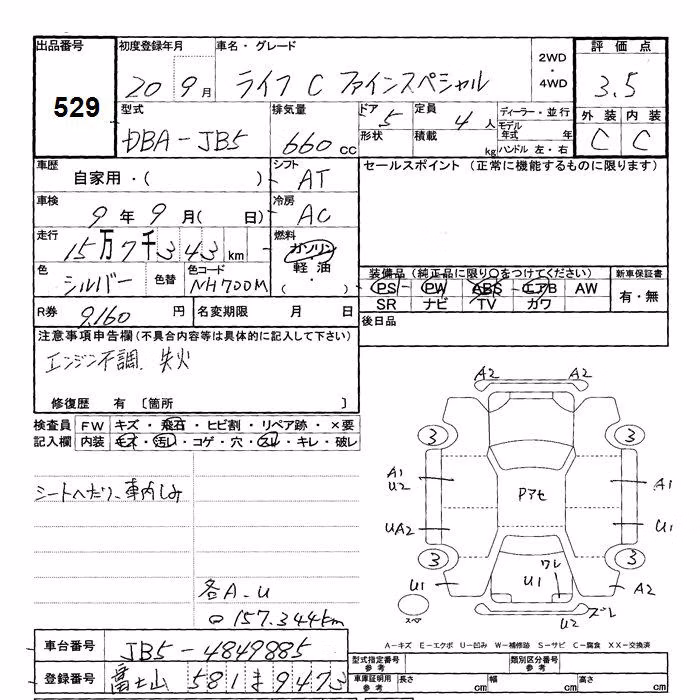 出品番号 初度登録年月 車名・グレード 2WD・4WD 評価点
529 20 9月 ライフ C ファインスペシャル 3.5
型式 排気量 ドア 5 定員 4人 ディーラー・並行 外装 内装
DBA-JB5 660cc 形状 積載 kg モデル年式 年 C C
ハンドル 左・右
車歴 自家用・( ) シフト AT セールスポイント (正常に機能するものに限ります)
車検 9年 9月( 日) 冷房 AC
走行 15万7千343km 燃料 ガソリン 軽油 ( ・ )
色 シルバー 色替 色コード NH700M 装備品 (純正品に限り○をつけてください) 新車保証書
PS PW ABS エアB AW 有・無
SR ナビ TV カワ
R券 9,160円 名変期限 月 日 後日品
注意事項申告欄(不具合内容等は具体的に記入して下さい)
エンジン不調、失火
修復歴 有 〔箇所 〕
検査員 FW キズ・飛石・ヒビ割・リペア跡・×要
記入欄 内装 キズ・汚レ・コゲ・穴・スレ・キレ・破レ
シートへたり、車内しみ
各A.U
157.344km
A2 A2
3 3
A1 A1
U2 Pアセ
UA2 U1
3 3
ワレ
U1 U1 A2
スペア U2 ズレ
A-キズ E-エクボ U-凹み W-補修跡 S-サビ C-腐食 XX-交換済
車台番号 JB5-4849885 型式指定番号 参考 類別区分番号 参考
登録番号 富士山 581 ま 9473 車庫証明用 参考 長さ cm 幅 cm 高さ cm